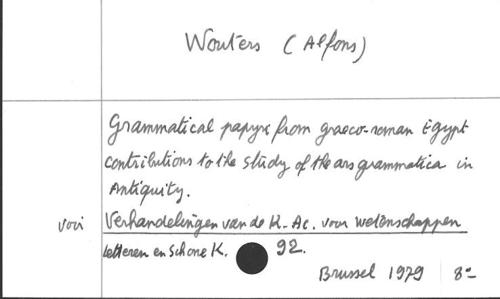 Wouters (Alfons)
Grammatical papyri from graeco-roman Egypt
contributions to the study of the ars grammatica in
Antiquity.
voir Verhandelingen van de K. Ac. voor wetenschappen
letteren en schone K. 92.
Brussel 1979 8°